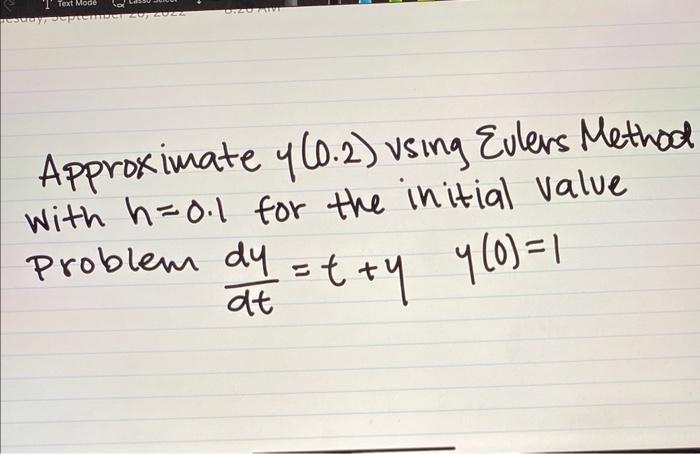 Text Mode
Approximate y(0.2) using Eulers Method
with h=0.1 for the initial value
Problem dy/dt = t + y y(0)=1